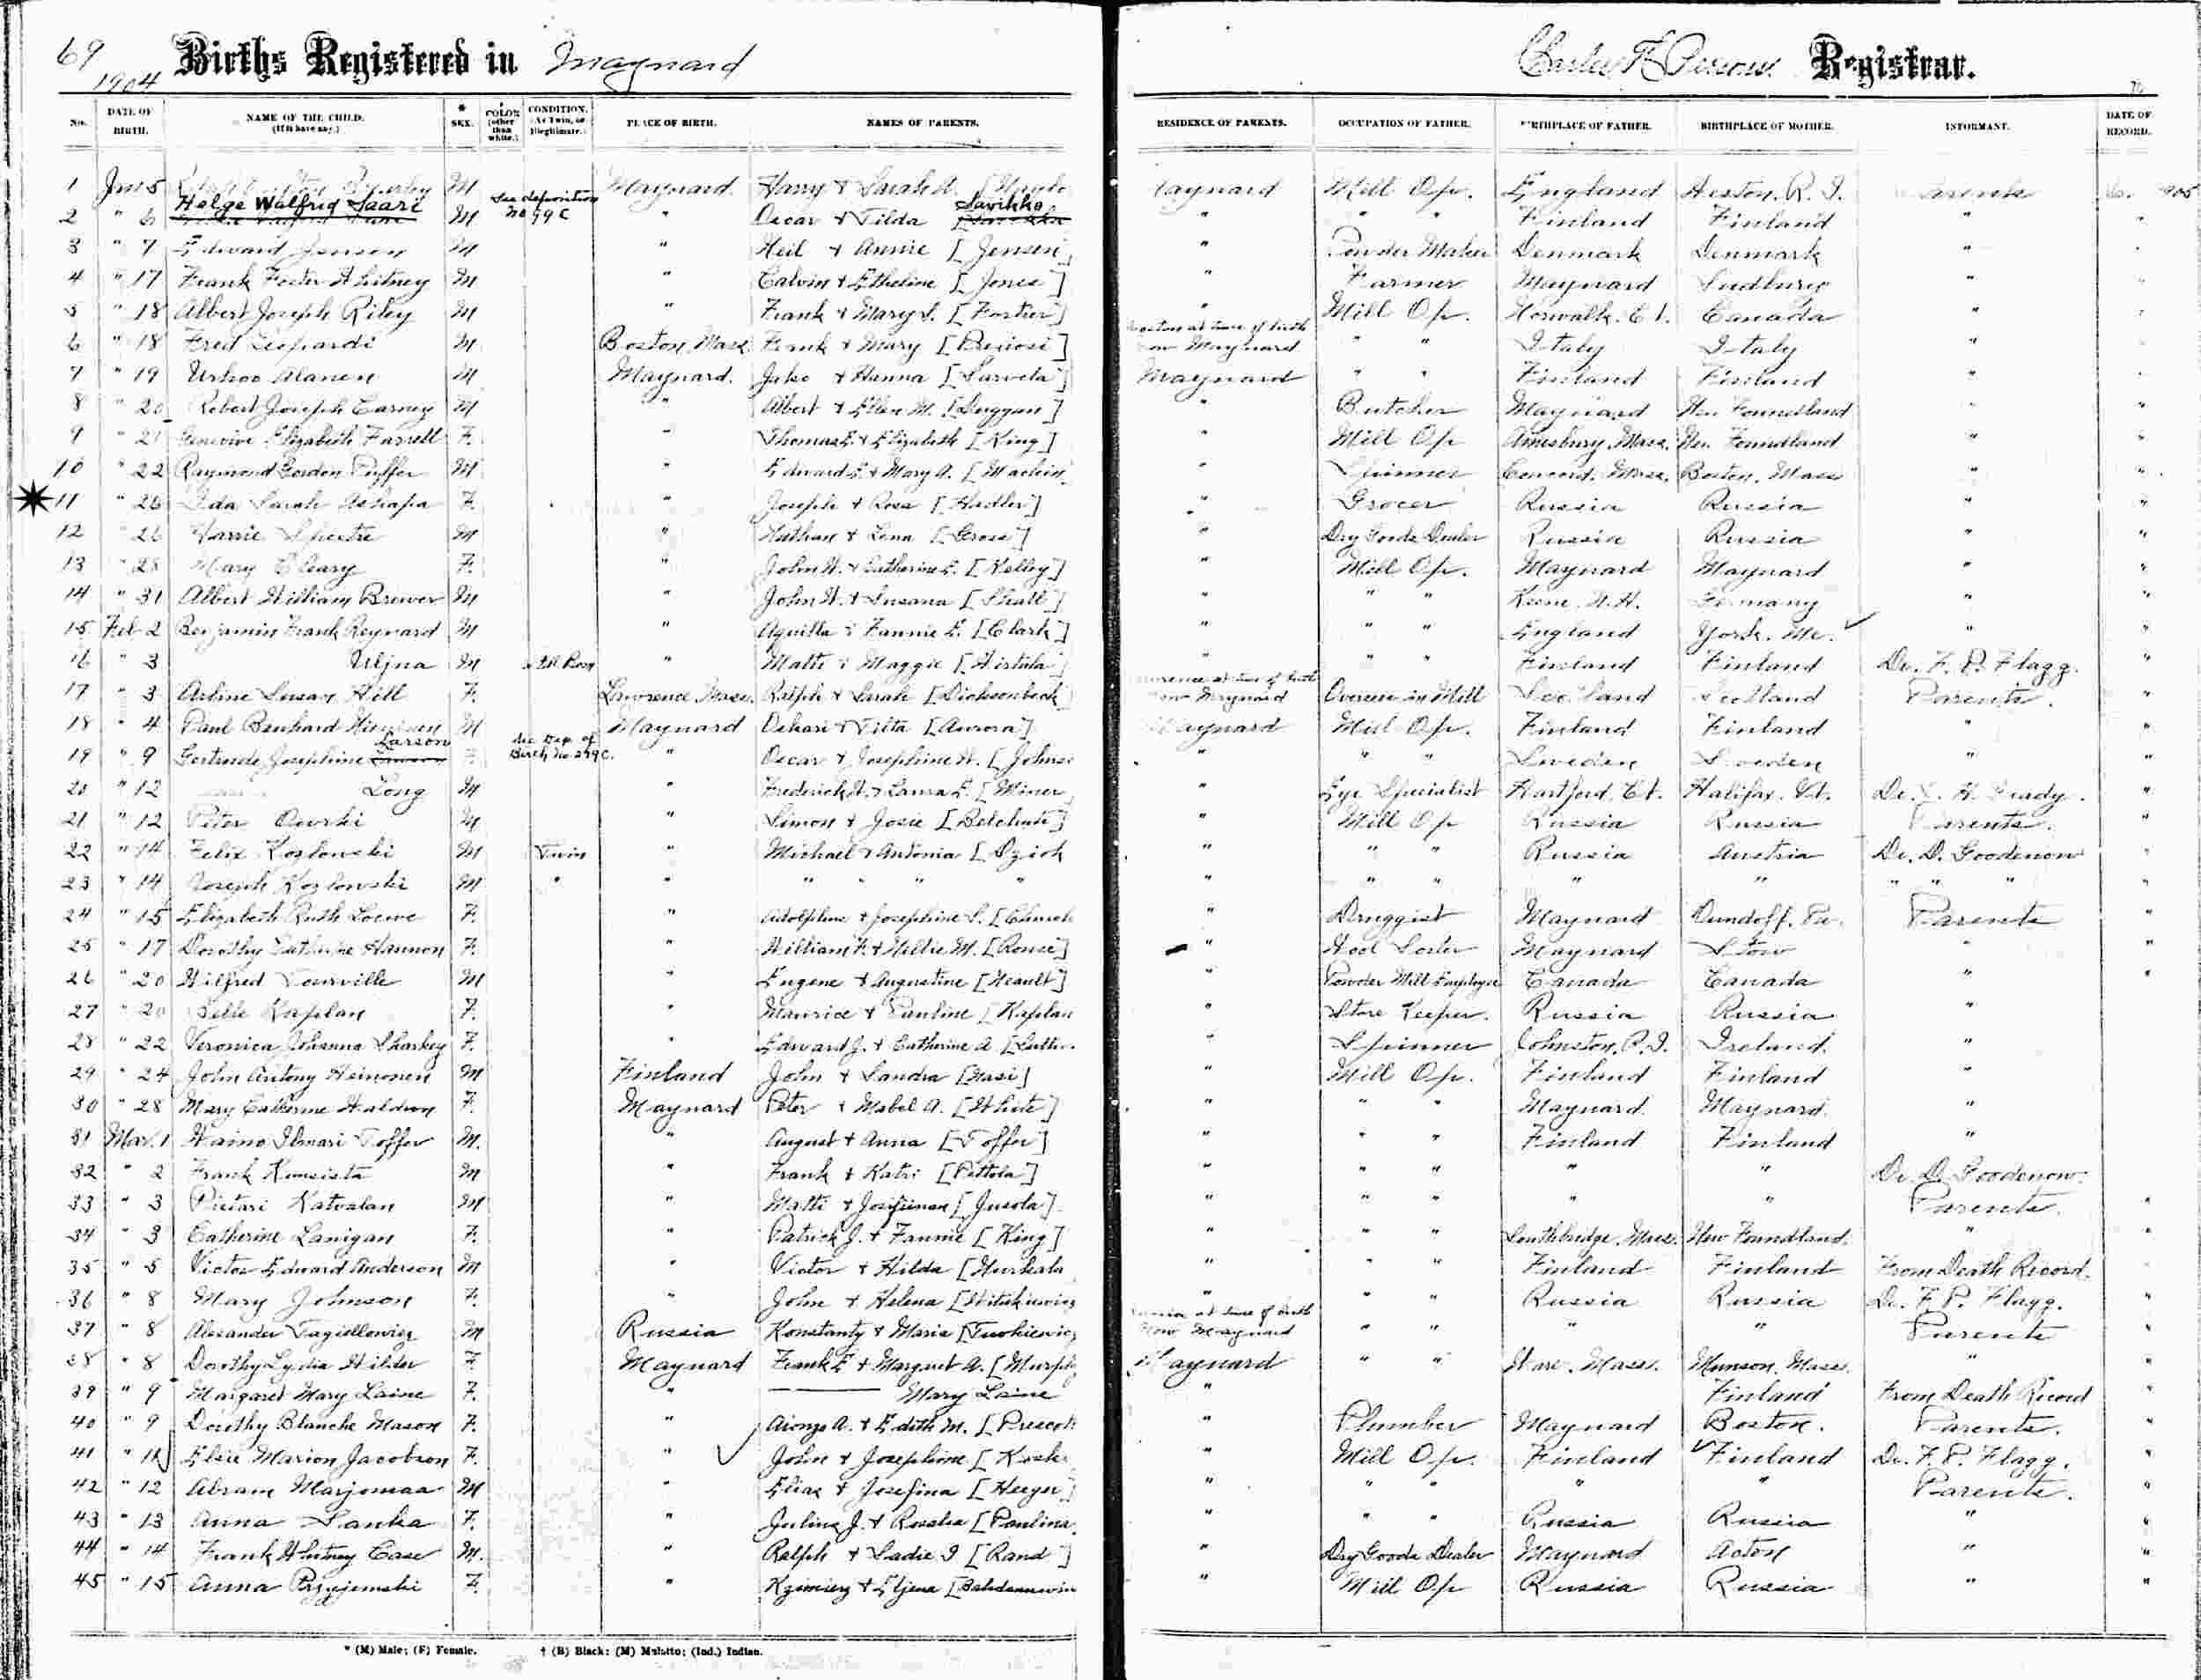 69
1904
Births Registered in Maynard
Registrar.
No. DATE OF BIRTH. NAME OF THE CHILD. (If it have any.) * SEX. COLOR (other than white.) CONDITION. (As Twin, or Illegitimate.) PLACE OF BIRTH. NAMES OF PARENTS. RESIDENCE OF PARENTS. OCCUPATION OF FATHER. BIRTHPLACE OF FATHER. BIRTHPLACE OF MOTHER. INFORMANT. DATE OF RECORD.
1 Jan 5 M Maynard Harry & Sarah Maynard Mill Op. England R.I. Parents
2 " 6 Helge Walfrid Saari M See deposition No 99 C " Oscar & Vilda Savikko " " " Finland Finland "
3 " 7 Edward Jensen M " Neil & Annie [Jensen] " Powder Maker Denmark Denmark " "
4 " 17 Frank Foster Whitney M " Calvin & Etheline [Jones] " Farmer Maynard Sudbury "
5 " 18 Albert Joseph Riley M " Frank & Mary S. [Fortier] " Mill Op. Norwalk. Ct. Canada "
6 " 18 Fred Leopardi M Boston, Mass. Frank & Mary [Preziosi] Boston at time of birth now Maynard " " Italy Italy "
7 " 19 Urhoo Alanen M Maynard. & Hanna Maynard " " Finland Finland "
8 " 20 Robert Joseph Carney M " Albert & Ellen M. [Duggan] " Butcher Maynard New Foundland "
9 " 21 Genevive Elizabeth Farrell F. " Thomas E & Elizabeth [King] " Mill Op Amesbury, Mass. New Foundland " "
10 " 22 Raymond Gordon Puffer M " Edward E & Mary A. [Machin] " Spinner Concord, Mass. Boston, Mass " "
11 " 26 Ida Sarah F. " Joseph & Rosa [Hadler] " Grocer Russia Russia " "
12 " 26 Harrie Spectre M " Nathan & Lena [Gross] " Dry Goods Dealer Russia Russia " "
13 " 28 Mary Cleary F. " John H. & Catherine E. [Kelley] " Mill Op. Maynard Maynard " "
14 " 31 Albert William Brewer M " John W. & Susana " " " Keene, N.H. Germany " "
15 Feb 2 Benjamin Frank Reynard M " Aquilla & Fannie E. [Clark] " " " England York. Me. " "
16 " 3 Uljna M Still Born " Matti & Maggie " " " Finland Finland Dr. F. P. Flagg. "
17 " 3 Arline Susan Hill F. Lawrence Mass. Ralph & Sarah Lawrence at time of birth now Maynard Overseer in Mill Scotland Scotland Parents. "
18 " 4 Paul Bernhard M Maynard Oskari & [Aurora] Maynard Mill Op. Finland Finland " "
19 " 9 Gertrude Josephine Larson F See Dep. of Birth No 279 C. " Oscar & Josephine W. " " " Sweden Sweden " "
20 " 12 Long M " Frederick W. & Laura E. [Miner] " Eye Specialist Hartford, Ct. Halifax, Vt. "
21 " 12 Peter M " Simon & Josie " Mill Op Russia Russia Parents. "
22 " 14 Felix Kozlowski M Twin " Michael & Antonia " " " Russia Austria Dr. D. Goodenow "
23 " 14 Joseph Kozlowski M " " " " " " " " " " " " " " "
24 " 15 Elizabeth Ruth Loewe F. " Adolphus & Josephine S. [Church " Druggist Maynard Dundoff. Pa. Parents "
25 " 17 Dorothy Catherine Hannon F. " William F. & Millie M. [Rouse] " Wool Sorter Maynard Stow " "
26 " 20 Wilfred Tourville M " Eugene & Augustine [Heault] " Powder Mill Employee Canada Canada " "
27 " 20 Belle Kaplan F. " Maurice & Pauline [Kaplan " Store Keeper. Russia Russia "
28 " 22 Veronica Johanna Sharkey F. " Edward J. & Catherine A " Spinner Johnston, R.I. Ireland. "
29 " 24 John Antony Heinonen M Finland John & Sandra [Nasi] " Mill Op. Finland Finland "
30 " 28 Mary Catherine Waldron F. Maynard Peter & Mabel A. [White] " " " Maynard. Maynard. "
31 Mar. 1 Waino Ilmari Toffer M. " August & Anna [Toffer] " " " Finland Finland "
32 " 2 Frank M " Frank & Katri [Pettola] " " " " " Dr. D. Goodenow.
33 " 3 Pietari Katvalan M " Matti & [Jusola] " " " " " Parents. "
34 " 3 Catherine Lanigan F. " Patrick J. & Fannie [King] " " " Southbridge, Mass. New Foundland. " "
35 " 5 Victor Edward Anderson M " Victor & Hilda " " " Finland Finland From Death Record. "
36 " 8 Mary Johnson F. " John & Helena " " " Russia Russia Dr. F. P. Flagg. "
37 " 8 Alexander Jagiellowicz M Russia Konstanty & Maria Russia at time of birth Now Maynard " " " " Parents "
38 " 8 Dorothy Lydia Wilder F. Maynard Frank E & Margaret A. [Murphy Maynard " " Ware, Mass. Munson, Mass. " "
39 " 9 Margaret Mary Laine F. " Mary Laine " Finland From Death Record "
40 " 9 Dorothy Blanche Mason F. " Alonzo A. & Edith M. [Prescott " Plumber Maynard Boston. Parents. "
41 " 11 Elsie Marion Jacobson F. " John & Josephine [Koski " Mill Op. Finland Finland Dr. F. P. Flagg. "
42 " 12 Abram Marjomaa M " Elias & Josefina " " " " " Parents. "
43 " 13 Anna Sanka F. " Julius J. & Rosalia [Paulina " " " Russia Russia " "
44 " 14 Frank Whitney Case M. " Ralph & Sadie I [Rand] " Dry Goods Dealer Maynard Acton " "
45 " 15 Anna Przyjemski F. " " Mill Op Russia Russia " "
* (M) Male; (F) Female. † (B) Black; (M) Mulatto; (Ind.) Indian.